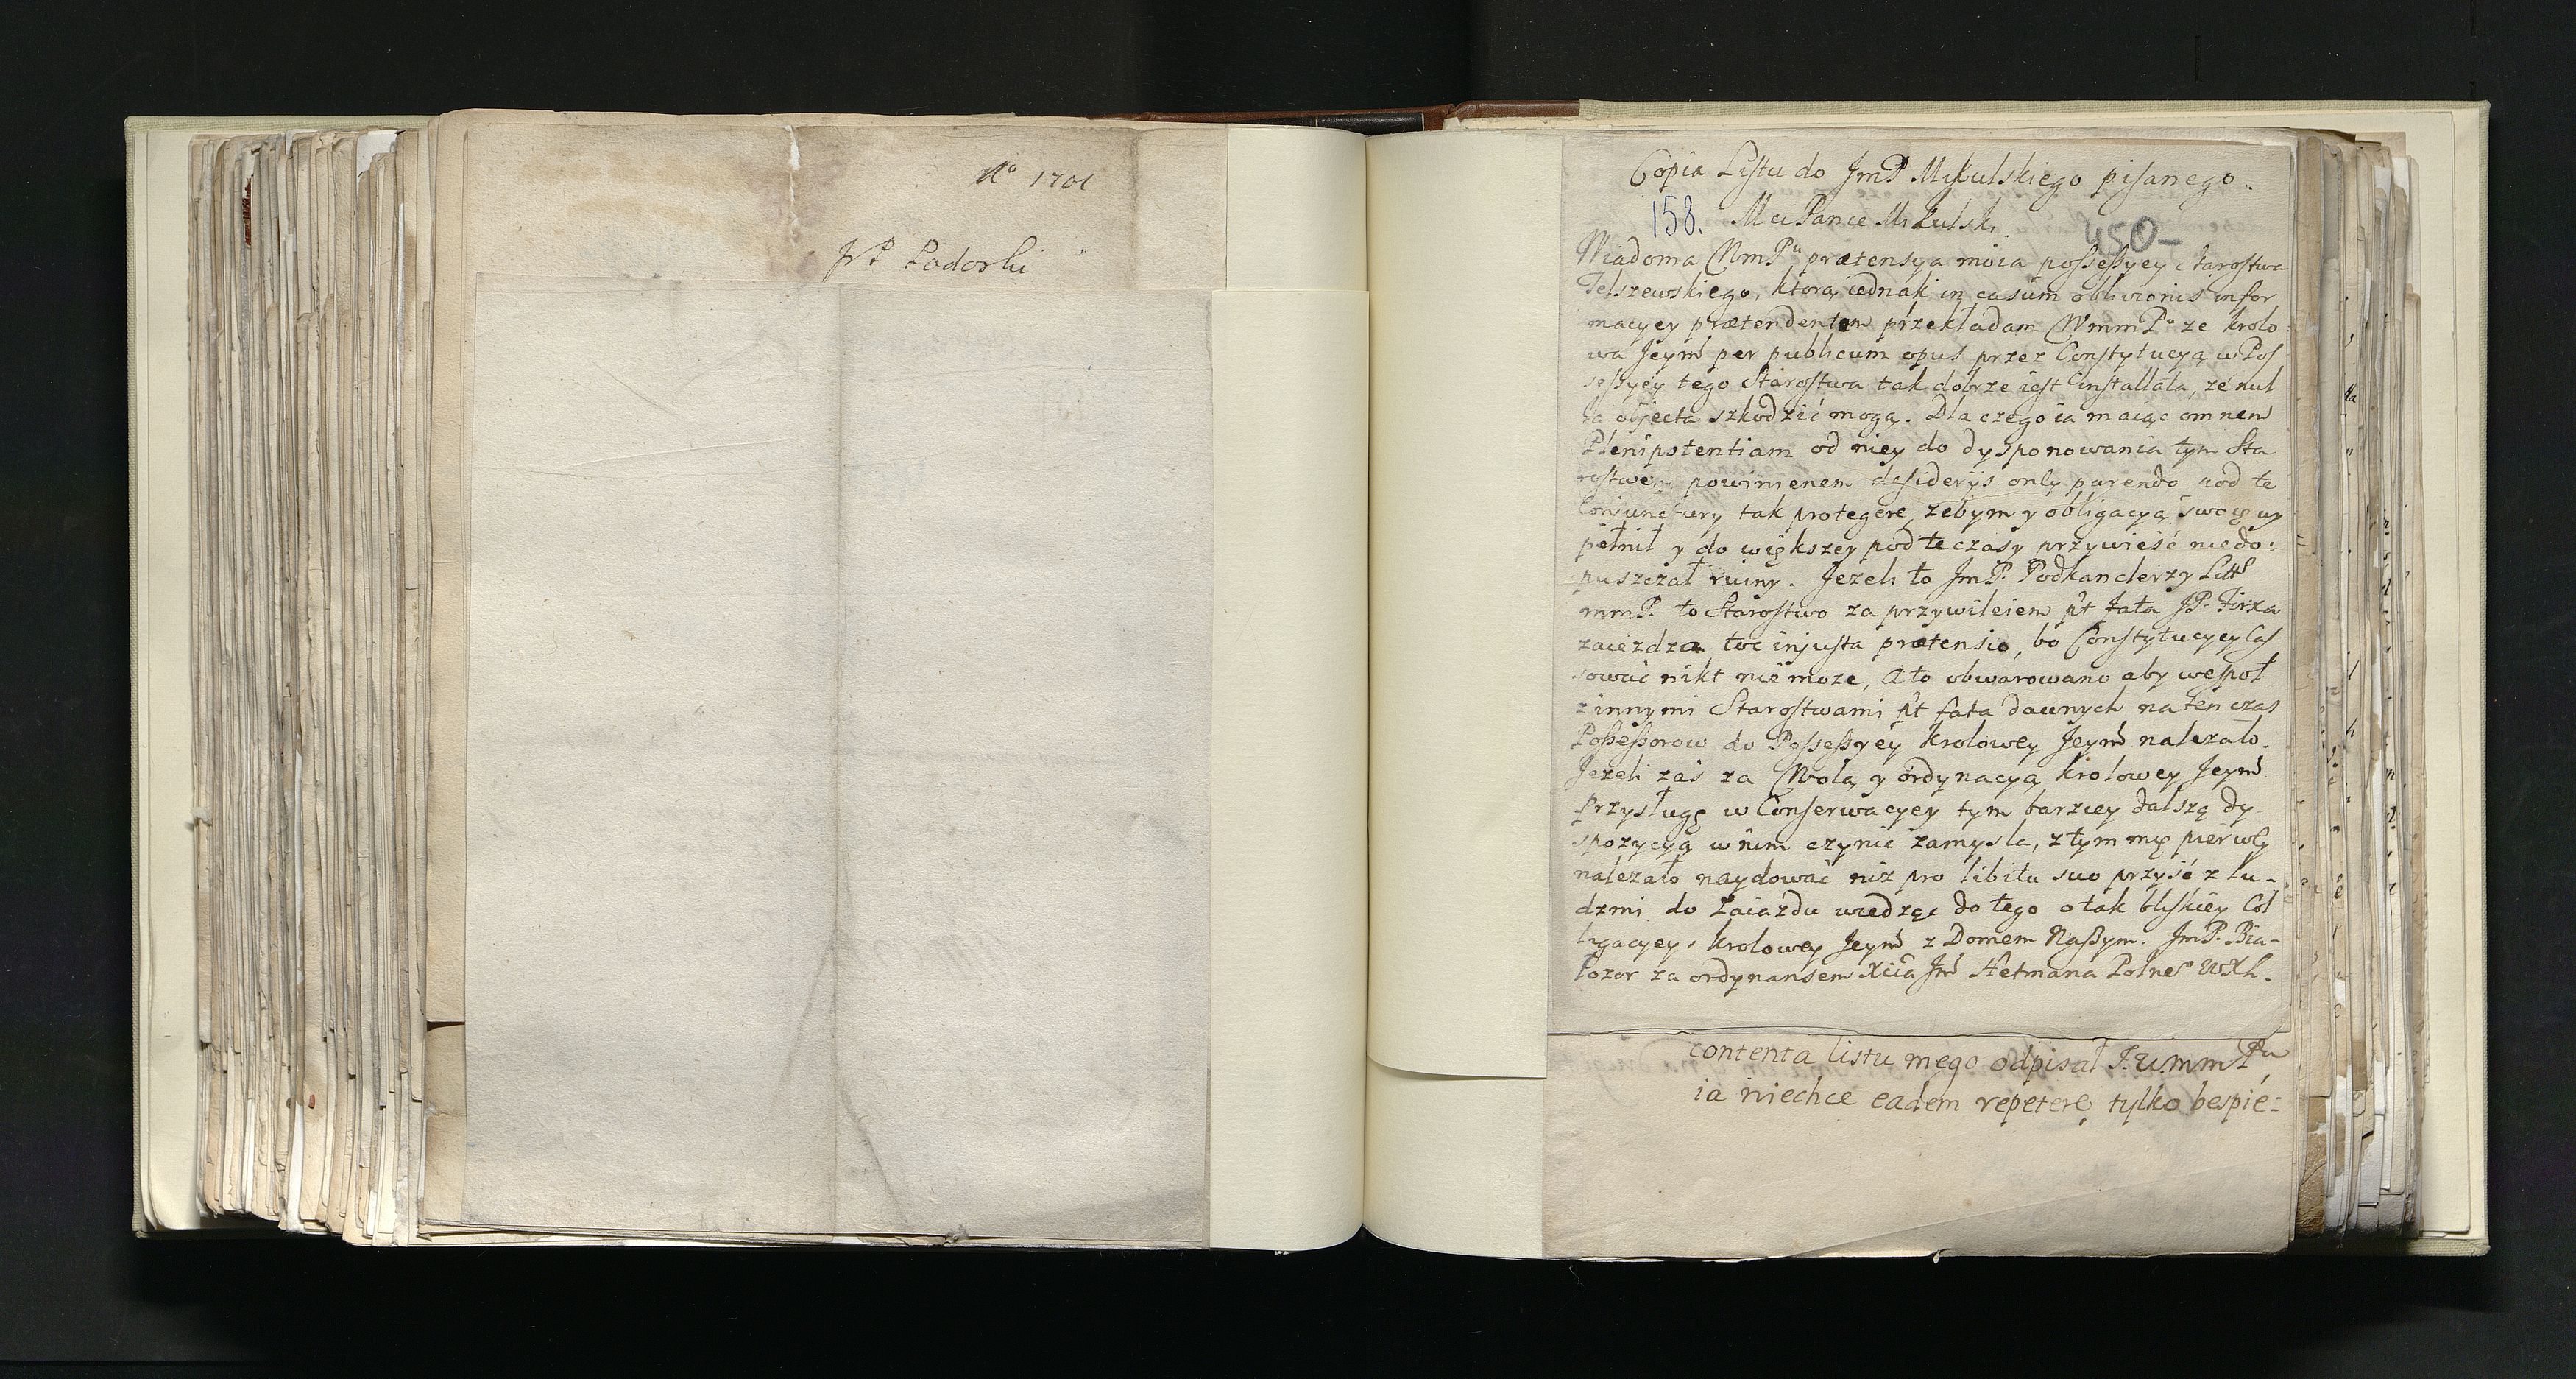 Aº 1701
JP Podorski
Copia Listu do JmP Mikulskiego pisanego.
158. Mci Panie Mikulski.
450-
Wiadoma WmPu prætensya moia possessyey starostwa
Telszewskiego, ktorą iednak in casum oblivionis infor
macyey prætendentem przekładam WmmPu ze krolo
wa Jeym per publicum opus przez Constytucyą w Pos
sessyey tego Starostwa tak dobrze iest installata, ze nul
la objecta szkodzić mogą. Dla czego ia maiąc omnem
Plenipotentiam od niey do dysponowania tym Sta
rostwem powinienem desiderijs parendo pod te
Conjunctury tak protegere, zebym y obligacyą swoię wy
pełnił y do większey pod te czasy przywieść niedo:
puszczał ruiny. Jezeli to JmP. Podkanclerzy Litt
mmP. to Starostwo za przywileiem pt fata JP. Firxa
zaiezdza toć injusta prætensio, bo Constytucyey Cas
sować nikt nie moze, a to obwarowano aby wespoł
z innymi Starostwami pt fata dawnych na ten czas
Possessorow do Possessyey Krolowey Jeym nalezało.
Jezeli zaś za Wolą y ordynacyą krolowey Jeym
Przysługę w Conserwacyey tym barziey dalszą dy
spozycyą w nim czynic zamysla, z tym mię pierwey
nalezało naydować niz pro libitu suo przyść z lu-
dzmi do Zaiazdu wiedząc do tego o tak bliskiey Col
ligacyey, krolowey Jeym z Domem Naszym. JmP. Bia-
łozor za ordynansem Xcia Jm Hetmana Polneº WXL.
contenta listu mego odpisał J. WmmPu
ia niechce eadem repetere, tylko bespie=